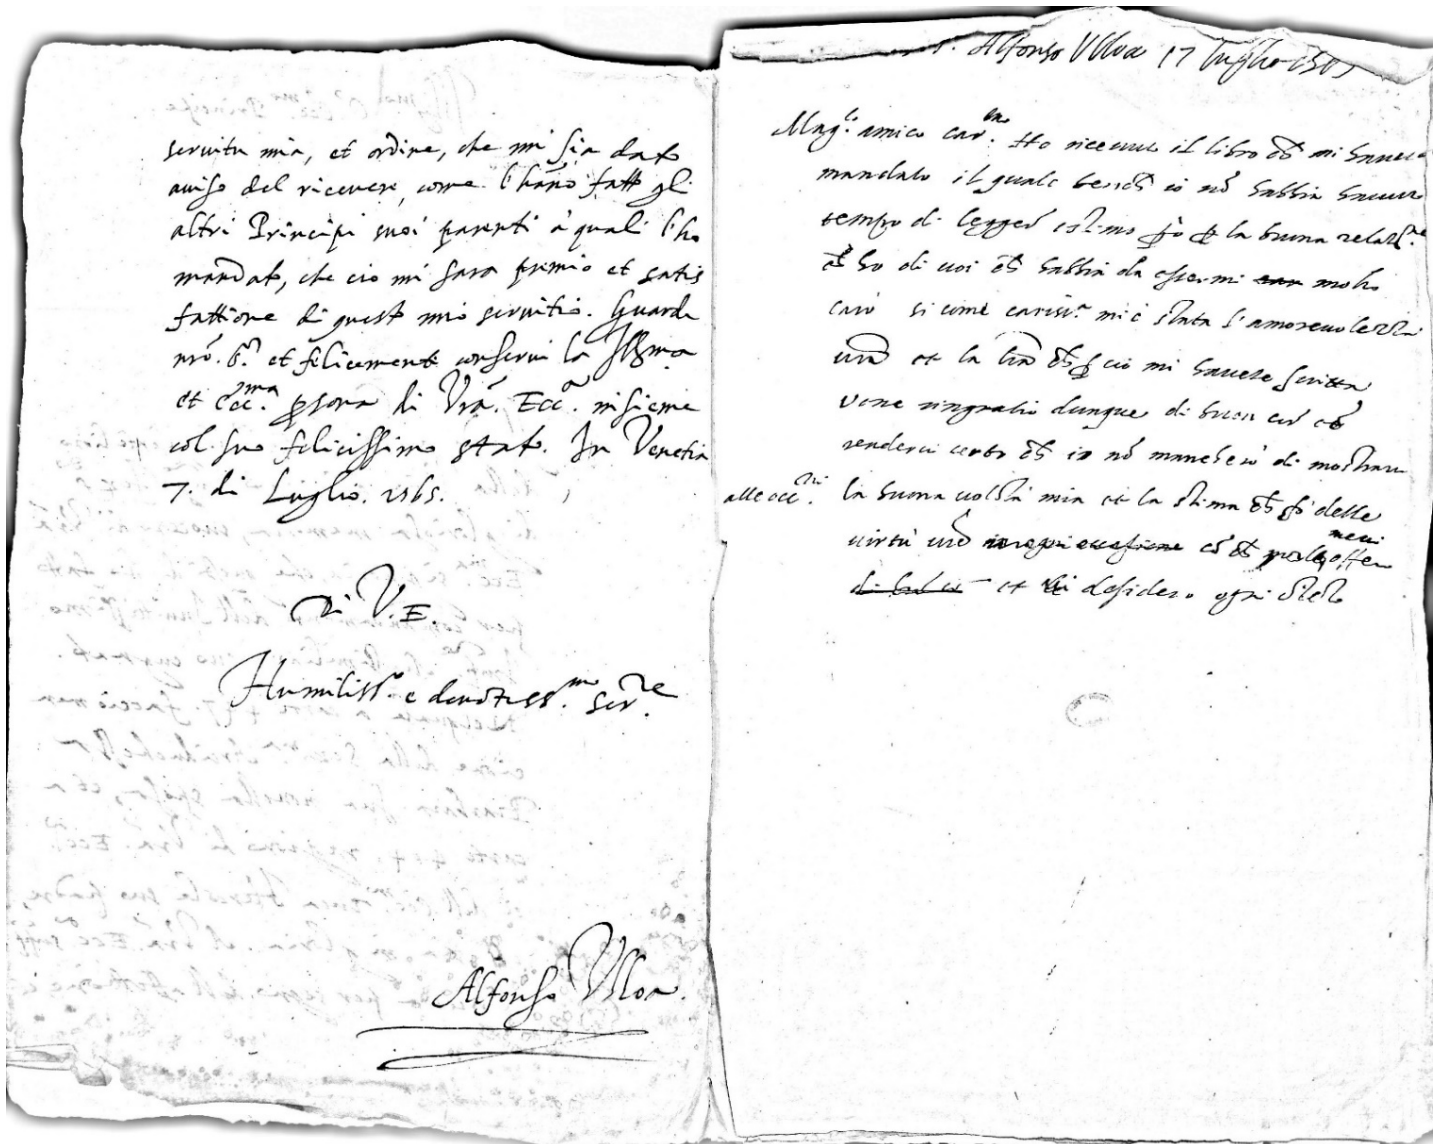 seruitu mia, et ordine, che mi sia dato
auiso del riceuere, come l'hāno fatto gli
altri Principi suoi parenti à quali l'ho
mandato, che cio mi sara premio et satis
fattione di questo mio seruitio. Guardi
nrō. S.r et felicemente conserui la Ill.ma
et Ecc.ma persona di Vrā. Ecc.a insieme
col suo felicissimo stato. In Venetia
7. di Luglio. 1565.
Di V. E.
Humiliss.o e deuotiss.mo ser.re
Alfonso Vlloa.
Alfonso Vlloa 17 luglio 1565
Mag.co amico car.mo Ho riceuuto il libro che mi hauete
mandato il quale benche io nō habbia hauuto
tempo di legger estimo però per la buona relat.ne
che ho di uoi che habbia da essermi molto
caro si come cariss.a mi è stata l'amoreuolezza
urā et la lrā che per cio mi hauete scritta
ue ne ringratio dunque di buon cuor cō
renderui certo che io nō mancherò di mostrar
alle occ.ni la buona uolōtà mia et la stima che fo delle
uirtù urē
et desidero ogni